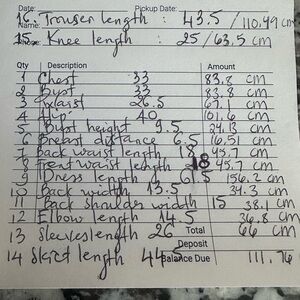 Date: Pickup Date:
16. Trouser length : 43.5 / 110.49 cm
Name:
15. Knee length : 25 / 63.5 cm
Qty Description Amount
1 Chest 33 83.8 cm
2 Bust 33 83.8 cm
3 Waist 26.5 67.1 cm
4 Hip 40 101.6 cm
5 Bust height 9.5 24.13 cm
6 Breast distance 6.5 16.51 cm
7 Back waist length 18 45.7 cm
8 Front waist length 18 45.7 cm
9 Dress length 61.5 156.2 cm
10 Back width 13.5 34.3 cm
11 Back shoulder width 15 38.1 cm
12 Elbow length 14.5 36.8 cm
13 Sleeves length 26 Total 66 cm
Deposit
14 Skirt length 44 Balance Due 111.76